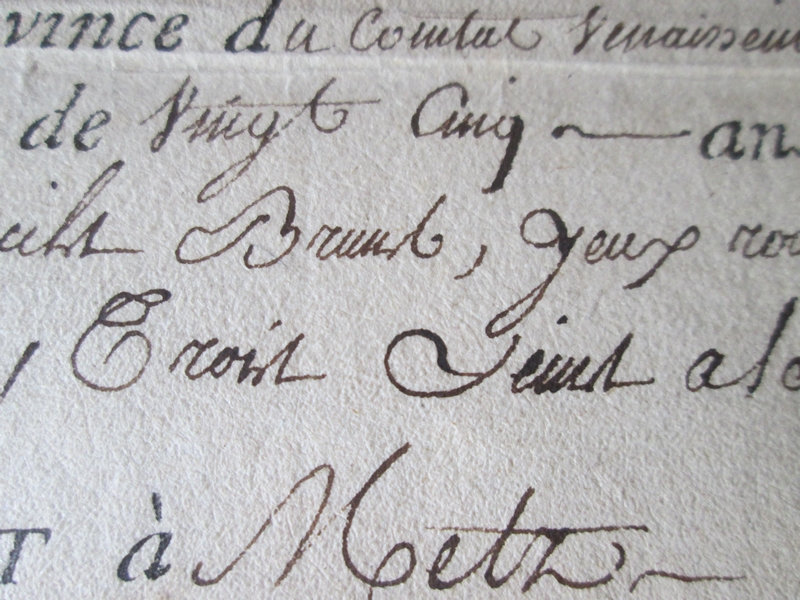 vince du Comtat Venaissen
de Vingt Cinq ans
Bruns, yeux rou
Etroit Teint alo
T à Metz